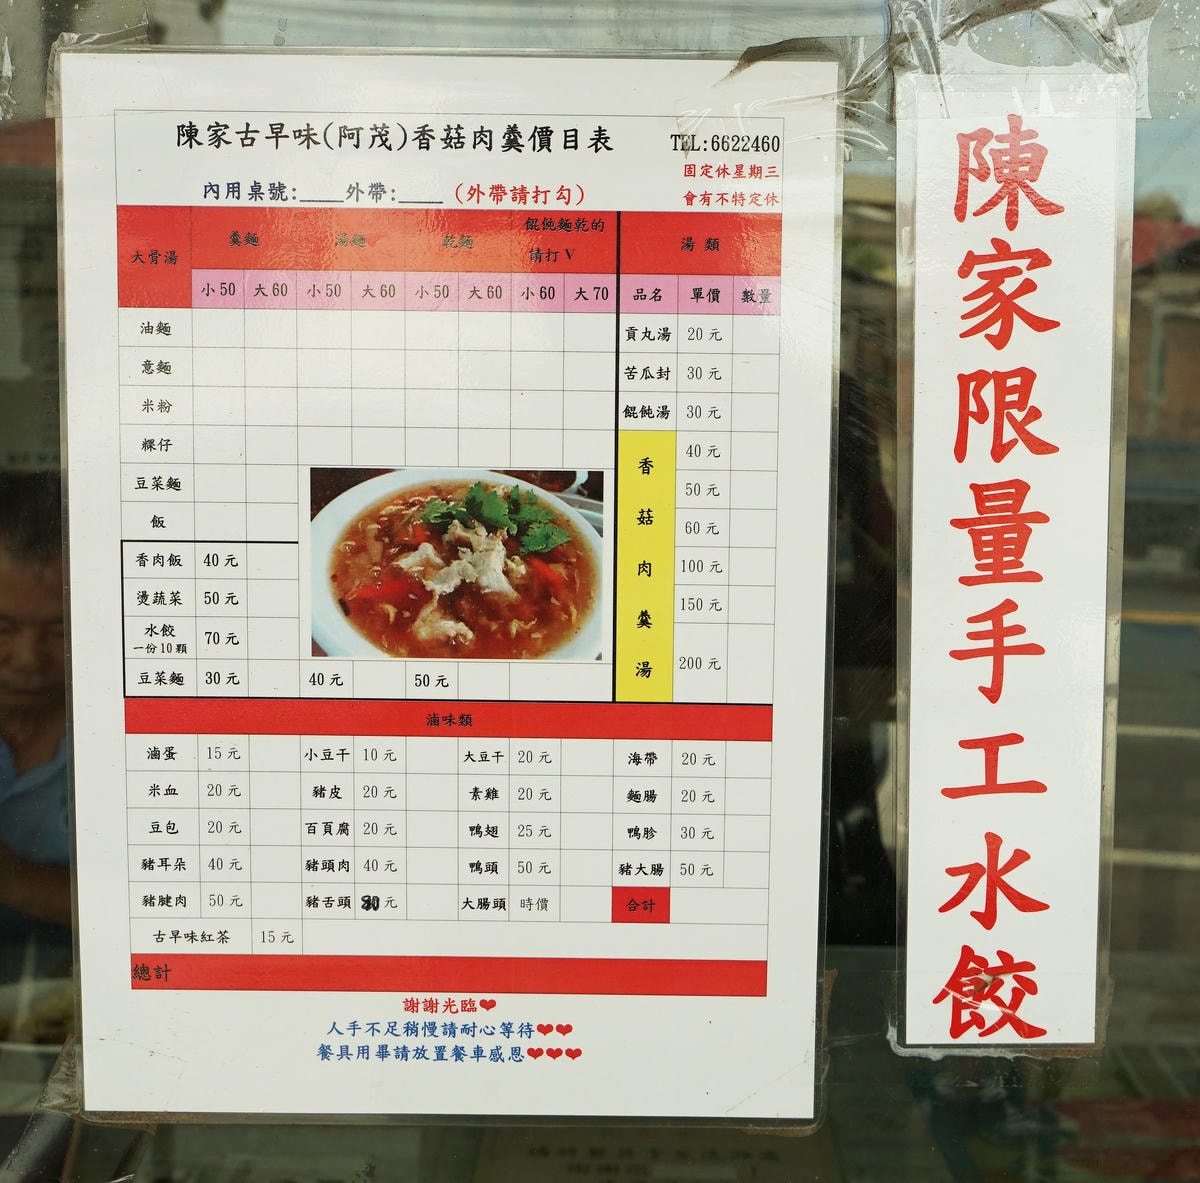 陳家古早味(阿茂)香菇肉羹價目表
TEL:6622460
固定休星期三
內用桌號:____外帶:____ (外帶請打勾)
會有不特定休
大骨湯 羹麵 湯麵 乾麵 餛飩麵乾的請打V 湯類
小50 大60 小50 大60 小50 大60 小60 大70 品名 單價 數量
油麵 貢丸湯 20元
意麵 苦瓜封 30元
米粉 餛飩湯 30元
粿仔 香菇肉羹湯 40元
豆菜麵 50元
飯 60元
香肉飯 40元 100元
燙蔬菜 50元 150元
水餃 一份10顆 70元 200元
豆菜麵 30元 40元 50元
滷味類
滷蛋 15元 小豆干 10元 大豆干 20元 海帶 20元
米血 20元 豬皮 20元 素雞 20元 麵腸 20元
豆包 20元 百頁腐 20元 鴨翅 25元 鴨胗 30元
豬耳朵 40元 豬頭肉 40元 鴨頭 50元 豬大腸 50元
豬腱肉 50元 豬舌頭 元 大腸頭 時價 合計
古早味紅茶 15元
總計
謝謝光臨❤
人手不足稍慢請耐心等待❤❤
餐具用畢請放置餐車感恩❤❤❤
陳家限量手工水餃